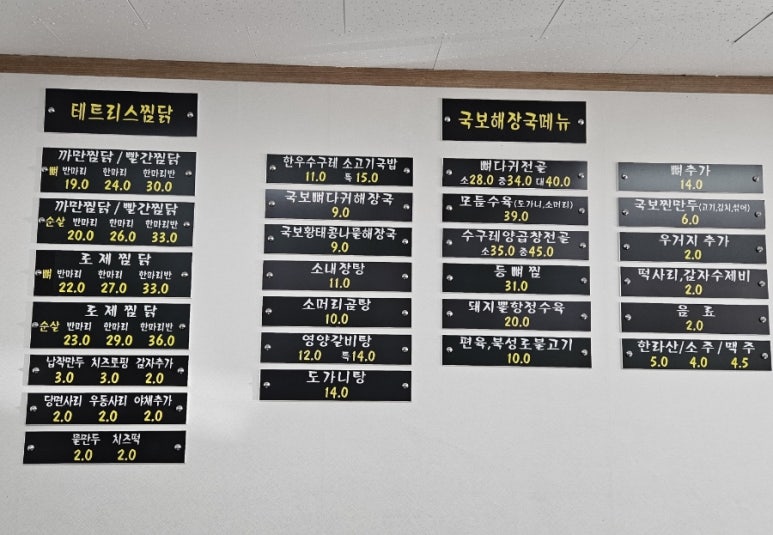 테트리스찜닭
까만찜닭/빨간찜닭
뼈 반마리 한마리 한마리반
19.0 24.0 30.0
까만찜닭/빨간찜닭
순살 반마리 한마리 한마리반
20.0 26.0 33.0
로제찜닭
뼈 반마리 한마리 한마리반
22.0 27.0 33.0
로제찜닭
순살 반마리 한마리 한마리반
23.0 29.0 36.0
납작만두 치즈토핑 감자추가
3.0 3.0 2.0
당면사리 우동사리 야채추가
2.0 2.0 2.0
물만두 치즈떡
2.0 2.0
한우수구레 소고기국밥
11.0 특 15.0
국보뼈다귀해장국
9.0
국보황태콩나물해장국
9.0
소내장탕
11.0
소머리곰탕
10.0
영양갈비탕
12.0 특14.0
도가니탕
14.0
국보해장국메뉴
뼈다귀전골
소28.0 중34.0 대40.0
모듬수육(도가니,소머리)
39.0
수구레양곱창전골
소35.0 중45.0
등뼈찜
31.0
돼지뽈항정수육
20.0
편육,북성로불고기
10.0
뼈추가
14.0
국보찐만두(고기,김치,섞어)
6.0
우거지 추가
2.0
떡사리,감자수제비
2.0
음료
2.0
한라산/소주/맥주
5.0 4.0 4.5